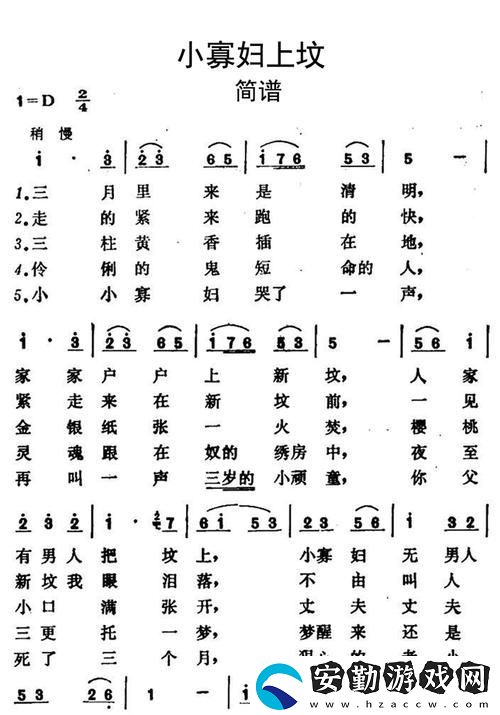 小寡妇上坟
简谱
1=D 2/4
稍慢
1· 3 | 23 65 | 176 53 | 5 - |
1.三月里来是清明，
2.走的紧来跑的快，
3.三柱黄香插在地，
4.伶俐的鬼短命的人，
5.小小寡妇哭了一声，
1· 3 | 23 65 | 176 53 | 5 - | 56 1 |
家家户户上新坟，人家
紧走来在新坟前，一见
金银纸张一火焚，樱桃
灵魂跟在奴的绣房中，夜至
再叫一声三岁的小顽童，你父
2 3 | 23 1 | 27 | 61 53 | 53 526 | 1 32 |
有男人把坟上，小寡妇无男人
新坟我眼泪落，不由叫人
小口满张开，丈夫丈夫
三更托一梦，梦醒来还是
死了三个月，
53 | 26 | 1 - |
安勤游戏网
www.hzaccw.com